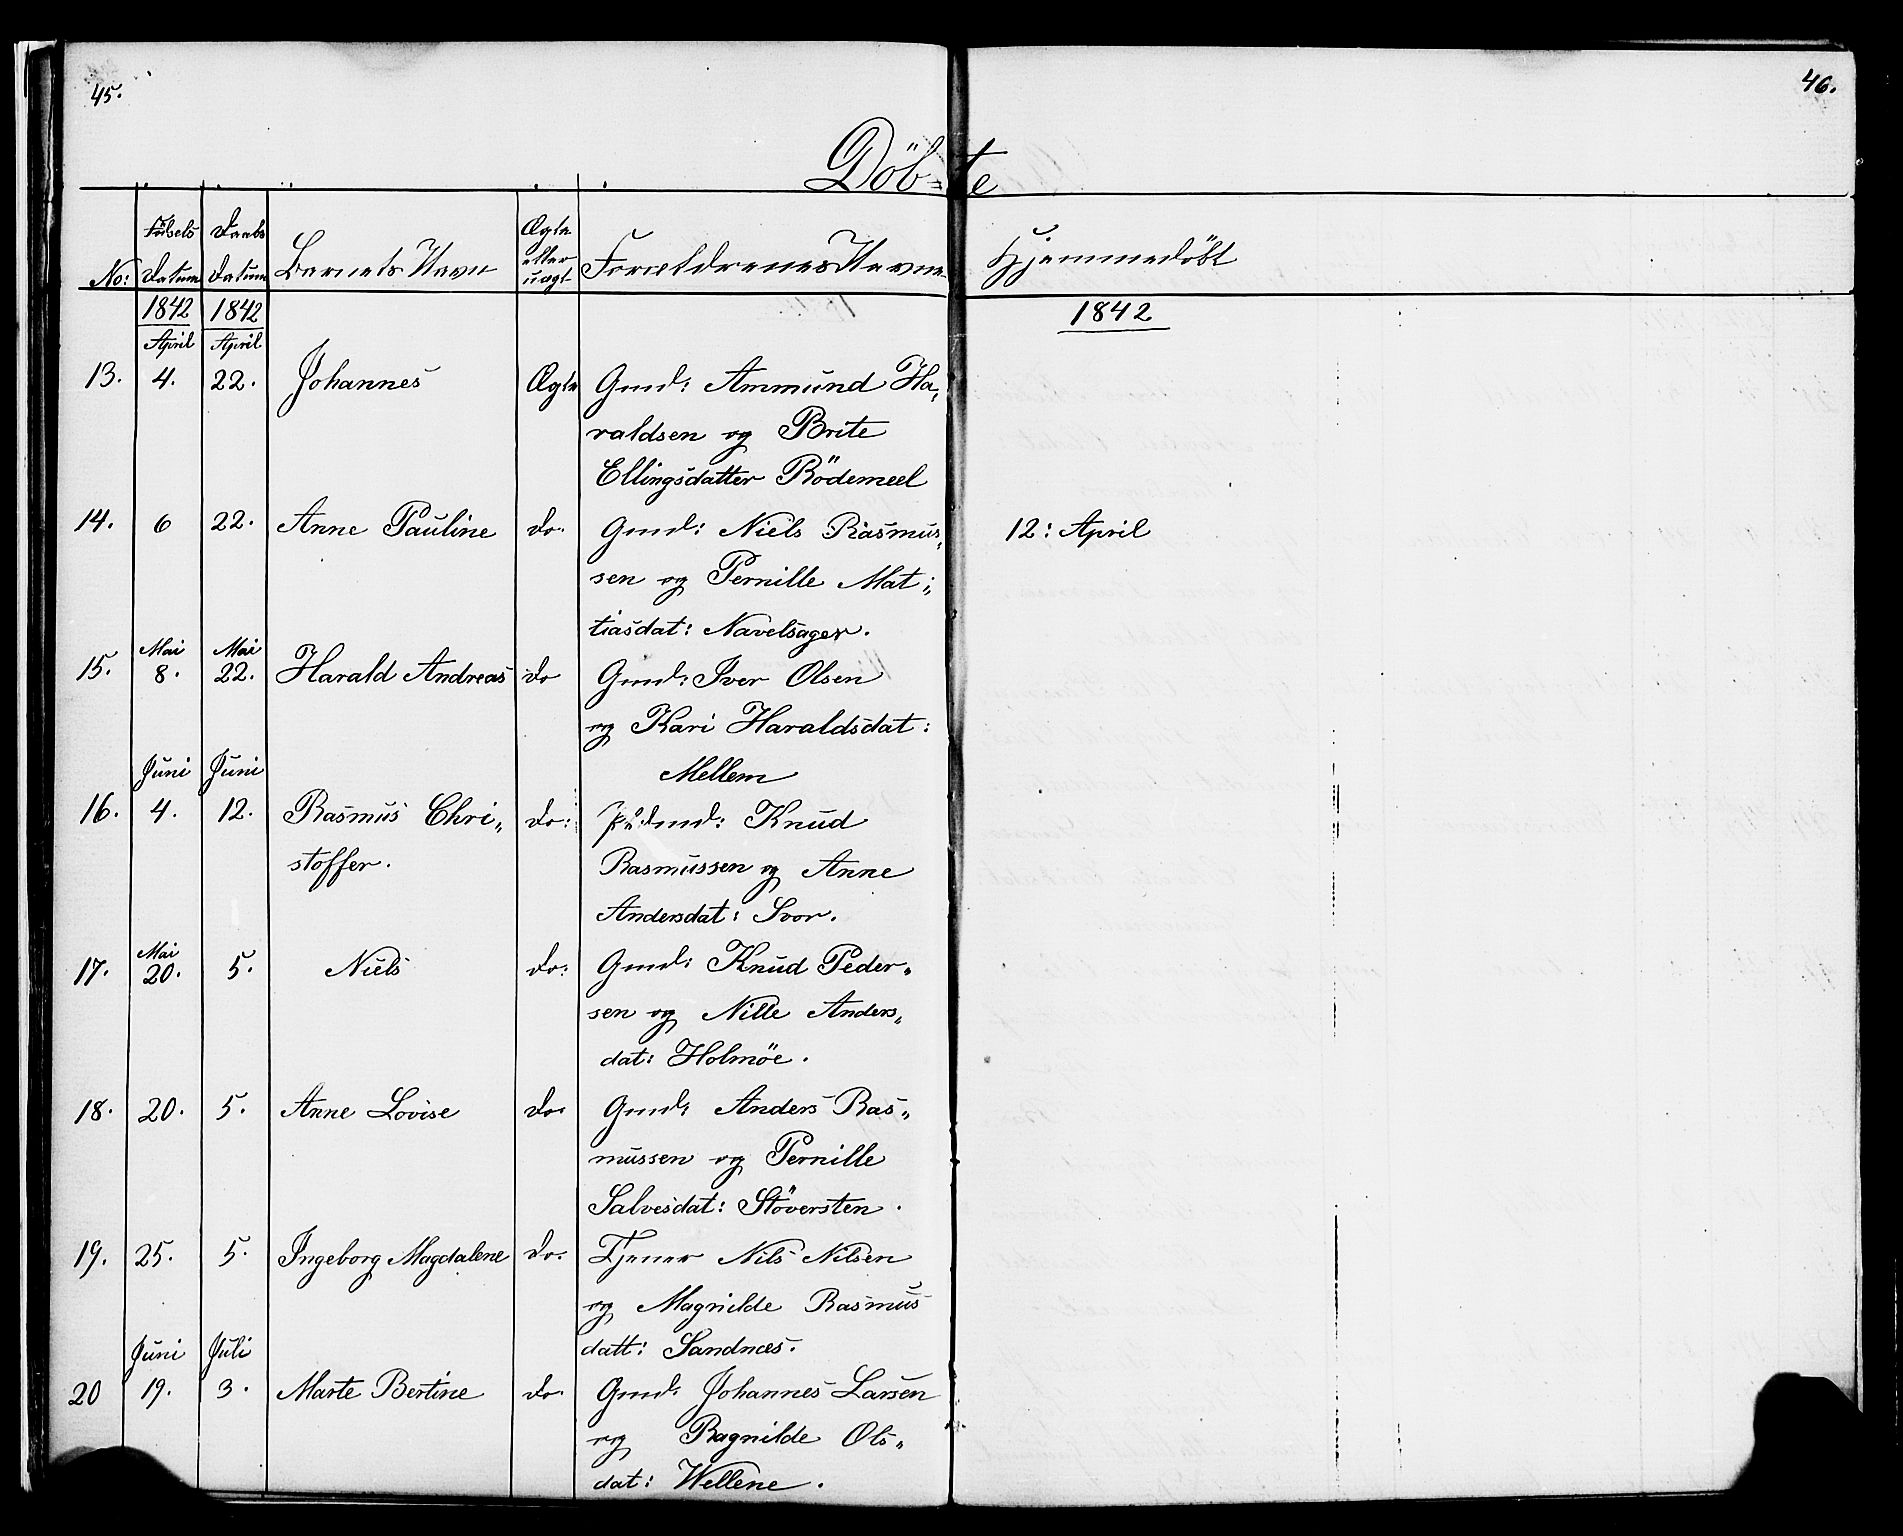 45.
46.
Döb=te
No: Födsels Datum Daabs Datum Barnets Navn Ægte eller uægt Forældrenes Navne Hjemmedöbt
1842 1842 1842
April April
13. 4. 22. Johannes Ægte Gmd: Ammund Ha„
raldsen og Brite
Ellingsdatter Rödemeel
14. 6 22. Anne Pauline do. Gmd: Niels Rasmus„ 12: April
sen og Pernille Mat„
tiasdat: Navelsager.
Mai Mai
15. 8. 22. Harald Andreas do Gmd: Iver Olsen
og Kari Haraldsdat:
Mellem
Juni Juni
16. 4. 12. Rasmus Chri„ do: Knud
stoffer. Rasmussen og Anne
Andersdat: Svor.
Mai
17. 20. 5. Niels do: Gmd: Knud Peder„
sen og Nille Anders„
dat: Holmöe.
18. 20. 5. Anne Lovise do. Gmd: Anders Ras„
mussen og Pernille
Salvesdat: Stöversten.
19. 25. 5. Ingeborg Magdalene do. Tjener Nils Nilsen
og Magnilde Rasmus
datt: Sandnæs.
Juni Juli
20 19. 3. Marte Bertine do. Gmd: Johannes Larsen
og Ragnilde Ols„
dat: Wellene.